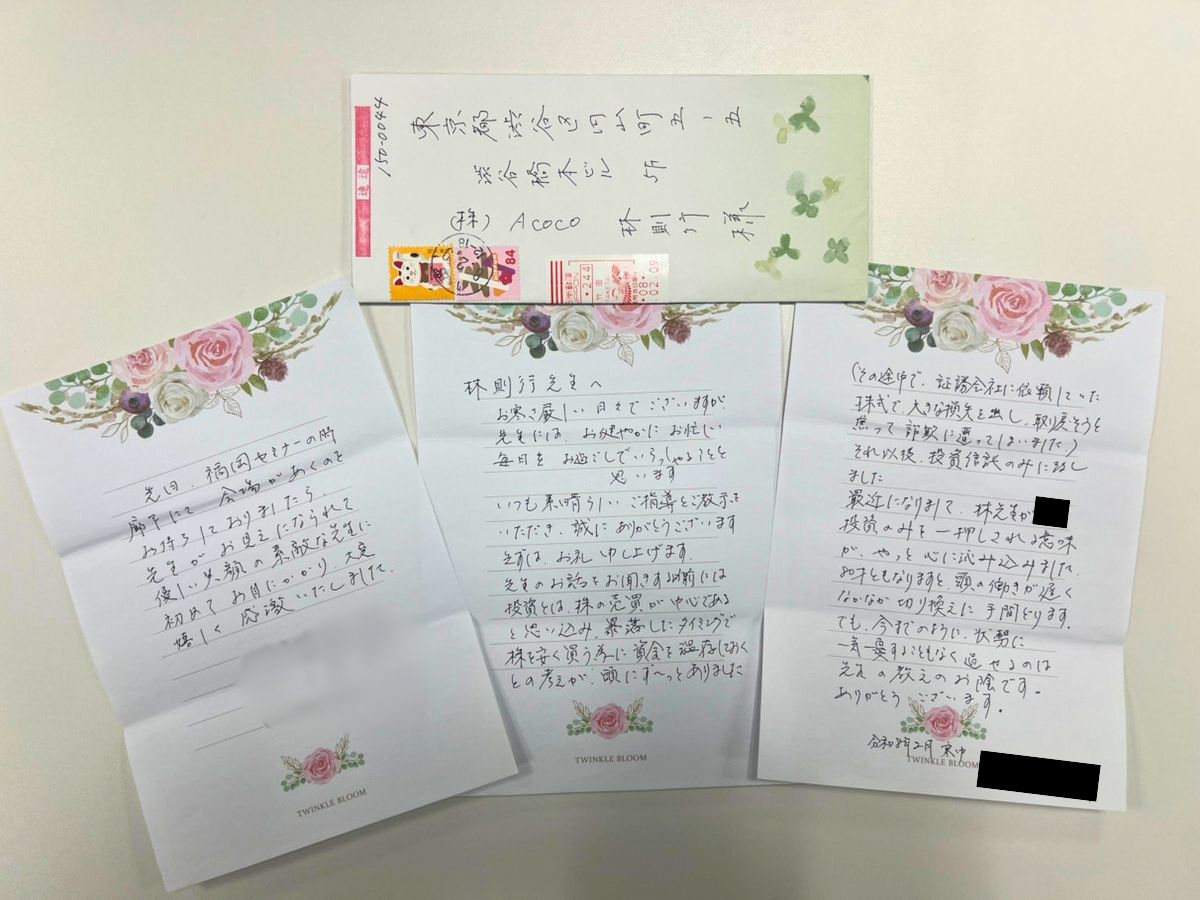 速達
150-0044
東京都渋谷区円山町五ノ五
渋谷橋本ビル 5F
(株) ACOCO 林則行様
84
84
NIPPON
244
08.02.09
林則行先生へ
お寒さ厳しい日々でございますが
先生には、お健やかにお忙しい
毎日をお過ごしでいらっしゃることと
思います
いつも素晴らしいご指導とご教示を
いただき、誠にありがとうございます
まずは、お礼申し上げます。
先生のお話をお聞きする以前には
投資とは、株の売買が中心である
と思い込み、暴落したタイミングで
株を安く買う為に資金を温存しておく
との考えが、頭にずーっとありました
(その途中で、証券会社に依頼していた
株式で、大きな損失を出し、取り戻そうと
焦って詐欺に遭ってしまいました)
それ以後、投資信託のみに致し
ました
最近になりまして、林先生が
投資のみを一押しされる意味
が、やっと心に沁み込みました。
80才ともなりますと、頭の働きが遅く
なかなか切り換えに手間どります。
でも、今までのように、状勢に
一喜一憂することもなく過せるのは
先生の教えのお陰です。
ありがとうございます。
令和8年2月 寒中
TWINKLE BLOOM
先日、福岡セミナーの際
廊下にて会場があくのを
お待ちしておりましたら、
先生がお見えになられて
優しい笑顔の素敵な先生に
初めてお目にかかり、大変
嬉しく感激いたしました。
TWINKLE BLOOM
TWINKLE BLOOM